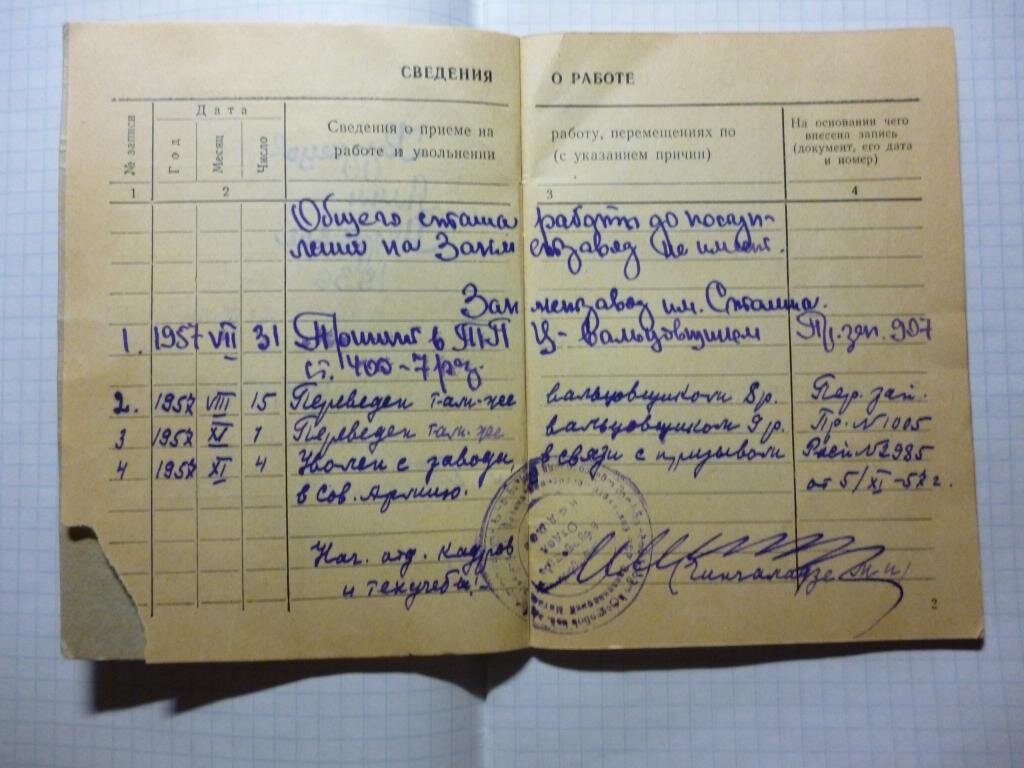 СВЕДЕНИЯ О РАБОТЕ
№ записи
Дата
Год
Месяц
Число
Сведения о приеме на работу, перемещениях по
работе и увольнении (с указанием причин)
На основании чего
внесена запись
(документ, его дата
и номер)
1 2 3 4
Общего стажа работы до поступ-
ления на Зак. метзавод не имеет.
Зак. метзавод им. Сталина.
1. 1957 VII 31 Принят в ТПЦ - вальцовщиком Пр. зап. 907
ст. 400 - 7 раз.
2. 1957 VIII 15 Переведен там-же вальцовщиком 8 р. Пер. зап.
3 1957 XI 1 Переведен там-же вальцовщиком 9 р. Пр. № 1005
4 1957 XI 4 Уволен с завода, в связи с призывом Расп № 2985
в Сов. Армию. от 5/XI-57 г.
Нач. отд. кадров
и техучебы:
2